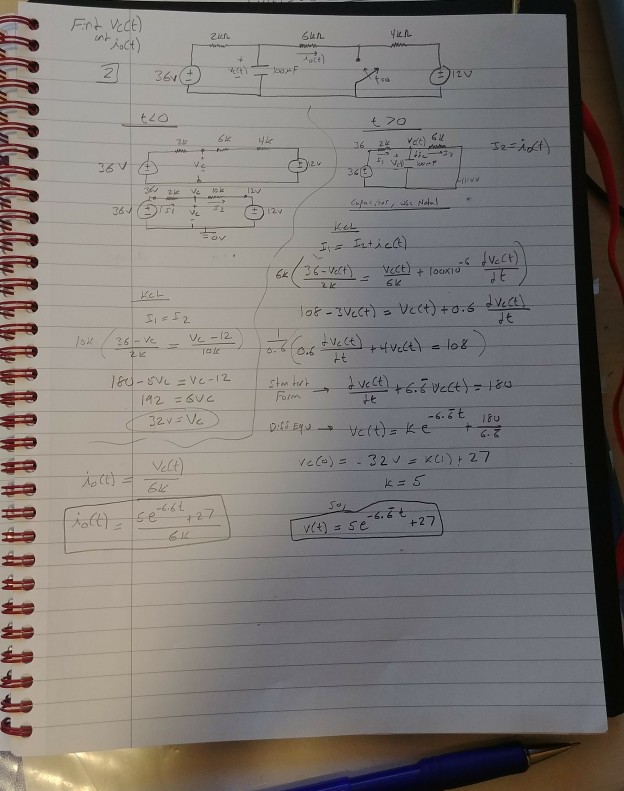 Find Vc(t)
and io(t)
2
2kΩ 6kΩ 4kΩ
36V + Vc(t) - 100µF io(t) t=0 12V
t<0
2k 6k 4k
36V Vc 12V
36V 2k Vc 10k 12V
36V I1 Vc I2 12V
0V
KCL
I1 = I2
10k ( (36-Vc)/2k = (Vc-12)/10k )
180-5Vc = Vc-12
192 = 6Vc
32V = Vc
io(t) = Vc(t)/6k
io(t) = (5e^-6.6̄t +27)/6k
t>0
36 2k Vc(t) 6k
36 I1 Vc(t) ic I2 100µF
I2 = io(t)
Capacitor, use Nodal
KCL
I1 = I2+ic(t)
6k ( (36-Vc(t))/2k = Vc(t)/6k + 100x10^-6 dVc(t)/dt )
108-3Vc(t) = Vc(t)+0.6 dVc(t)/dt
1/0.6 ( 0.6 dVc(t)/dt +4Vc(t) = 108 )
Standard Form → dVc(t)/dt + 6.6̄ Vc(t) = 180
Diff Equ → Vc(t) = ke^-6.6̄t + 180/6.6̄
Vc(0) = 32V = k(1)+27
k = 5
Sol
V(t) = 5e^-6.6̄t +27